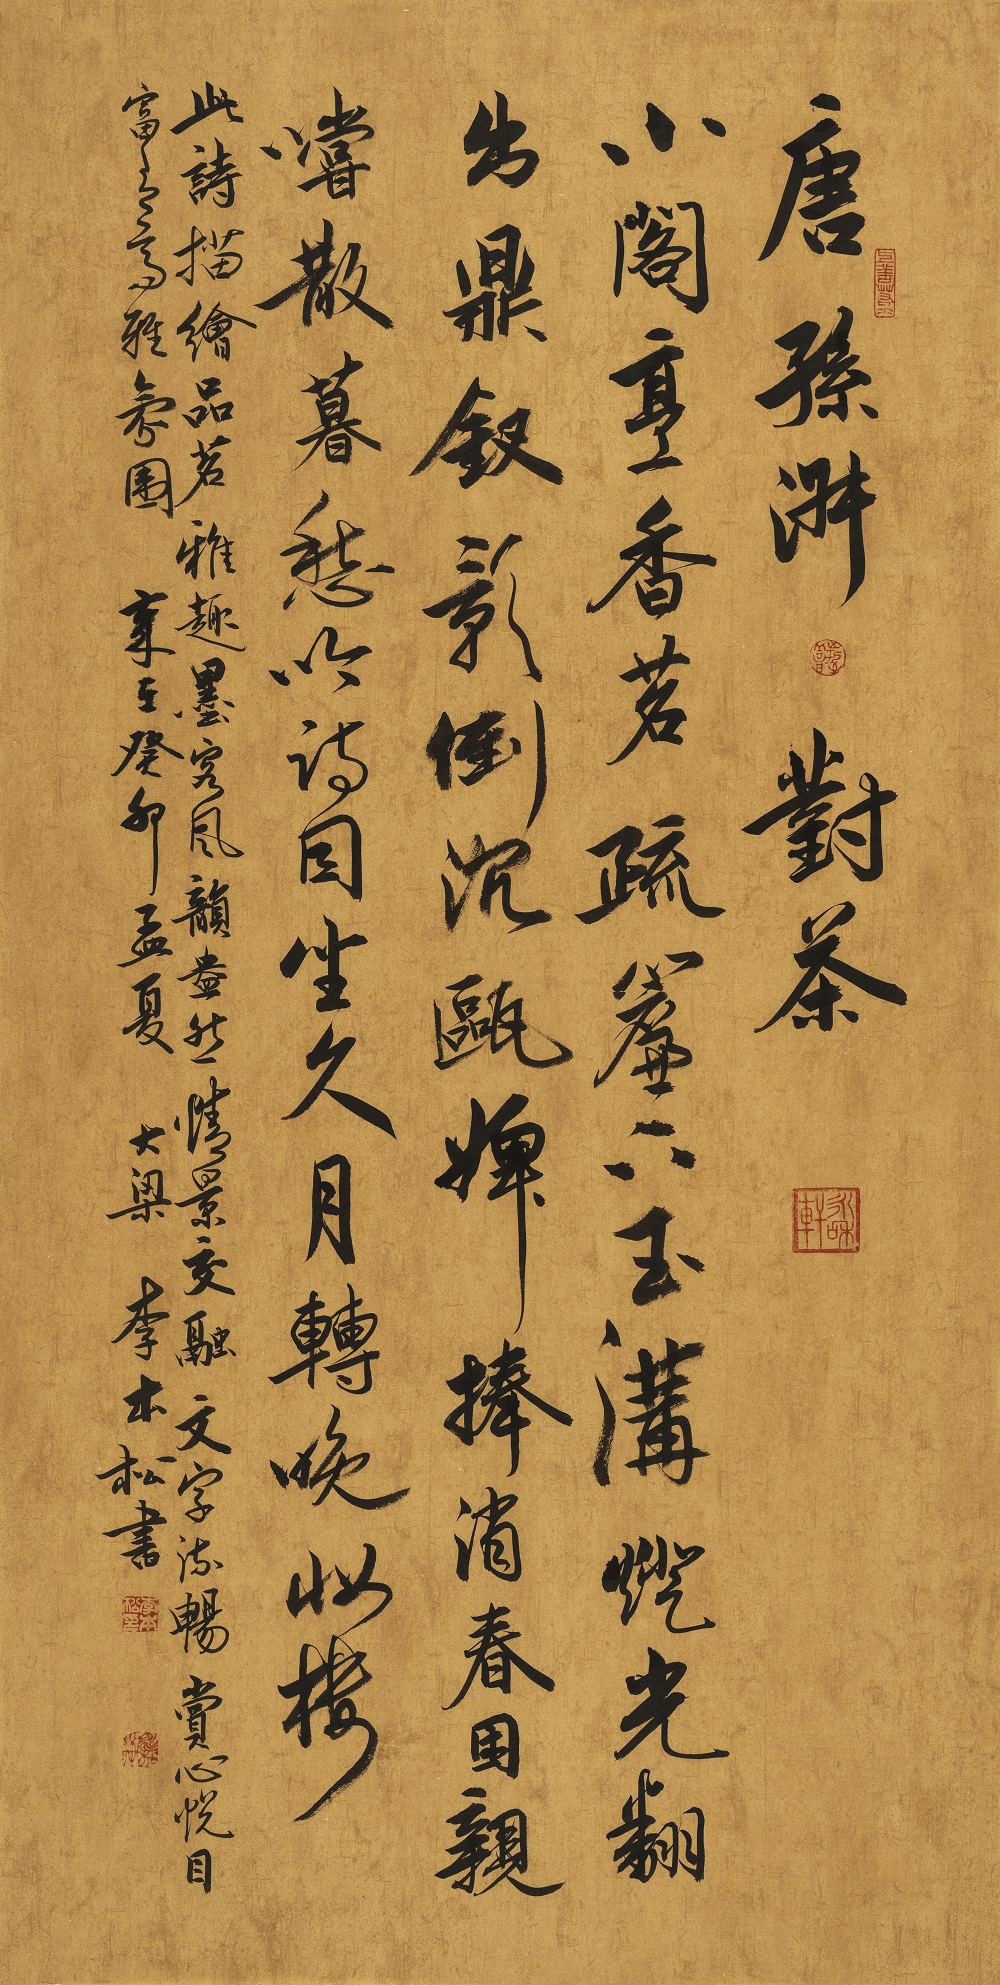 唐 孫淑 對茶
小閣烹香茗疏簾下玉溝燈光翻
出鼎釵影倒沉甌婢捧消春困親
嘗散暮愁吟詩因坐久月轉晚妝樓
此詩描繪品茗雅趣墨客風韻盎然情景交融文字流暢賞心悅目
富有高雅氛圍 歲在癸卯孟夏 大梁 李木松書